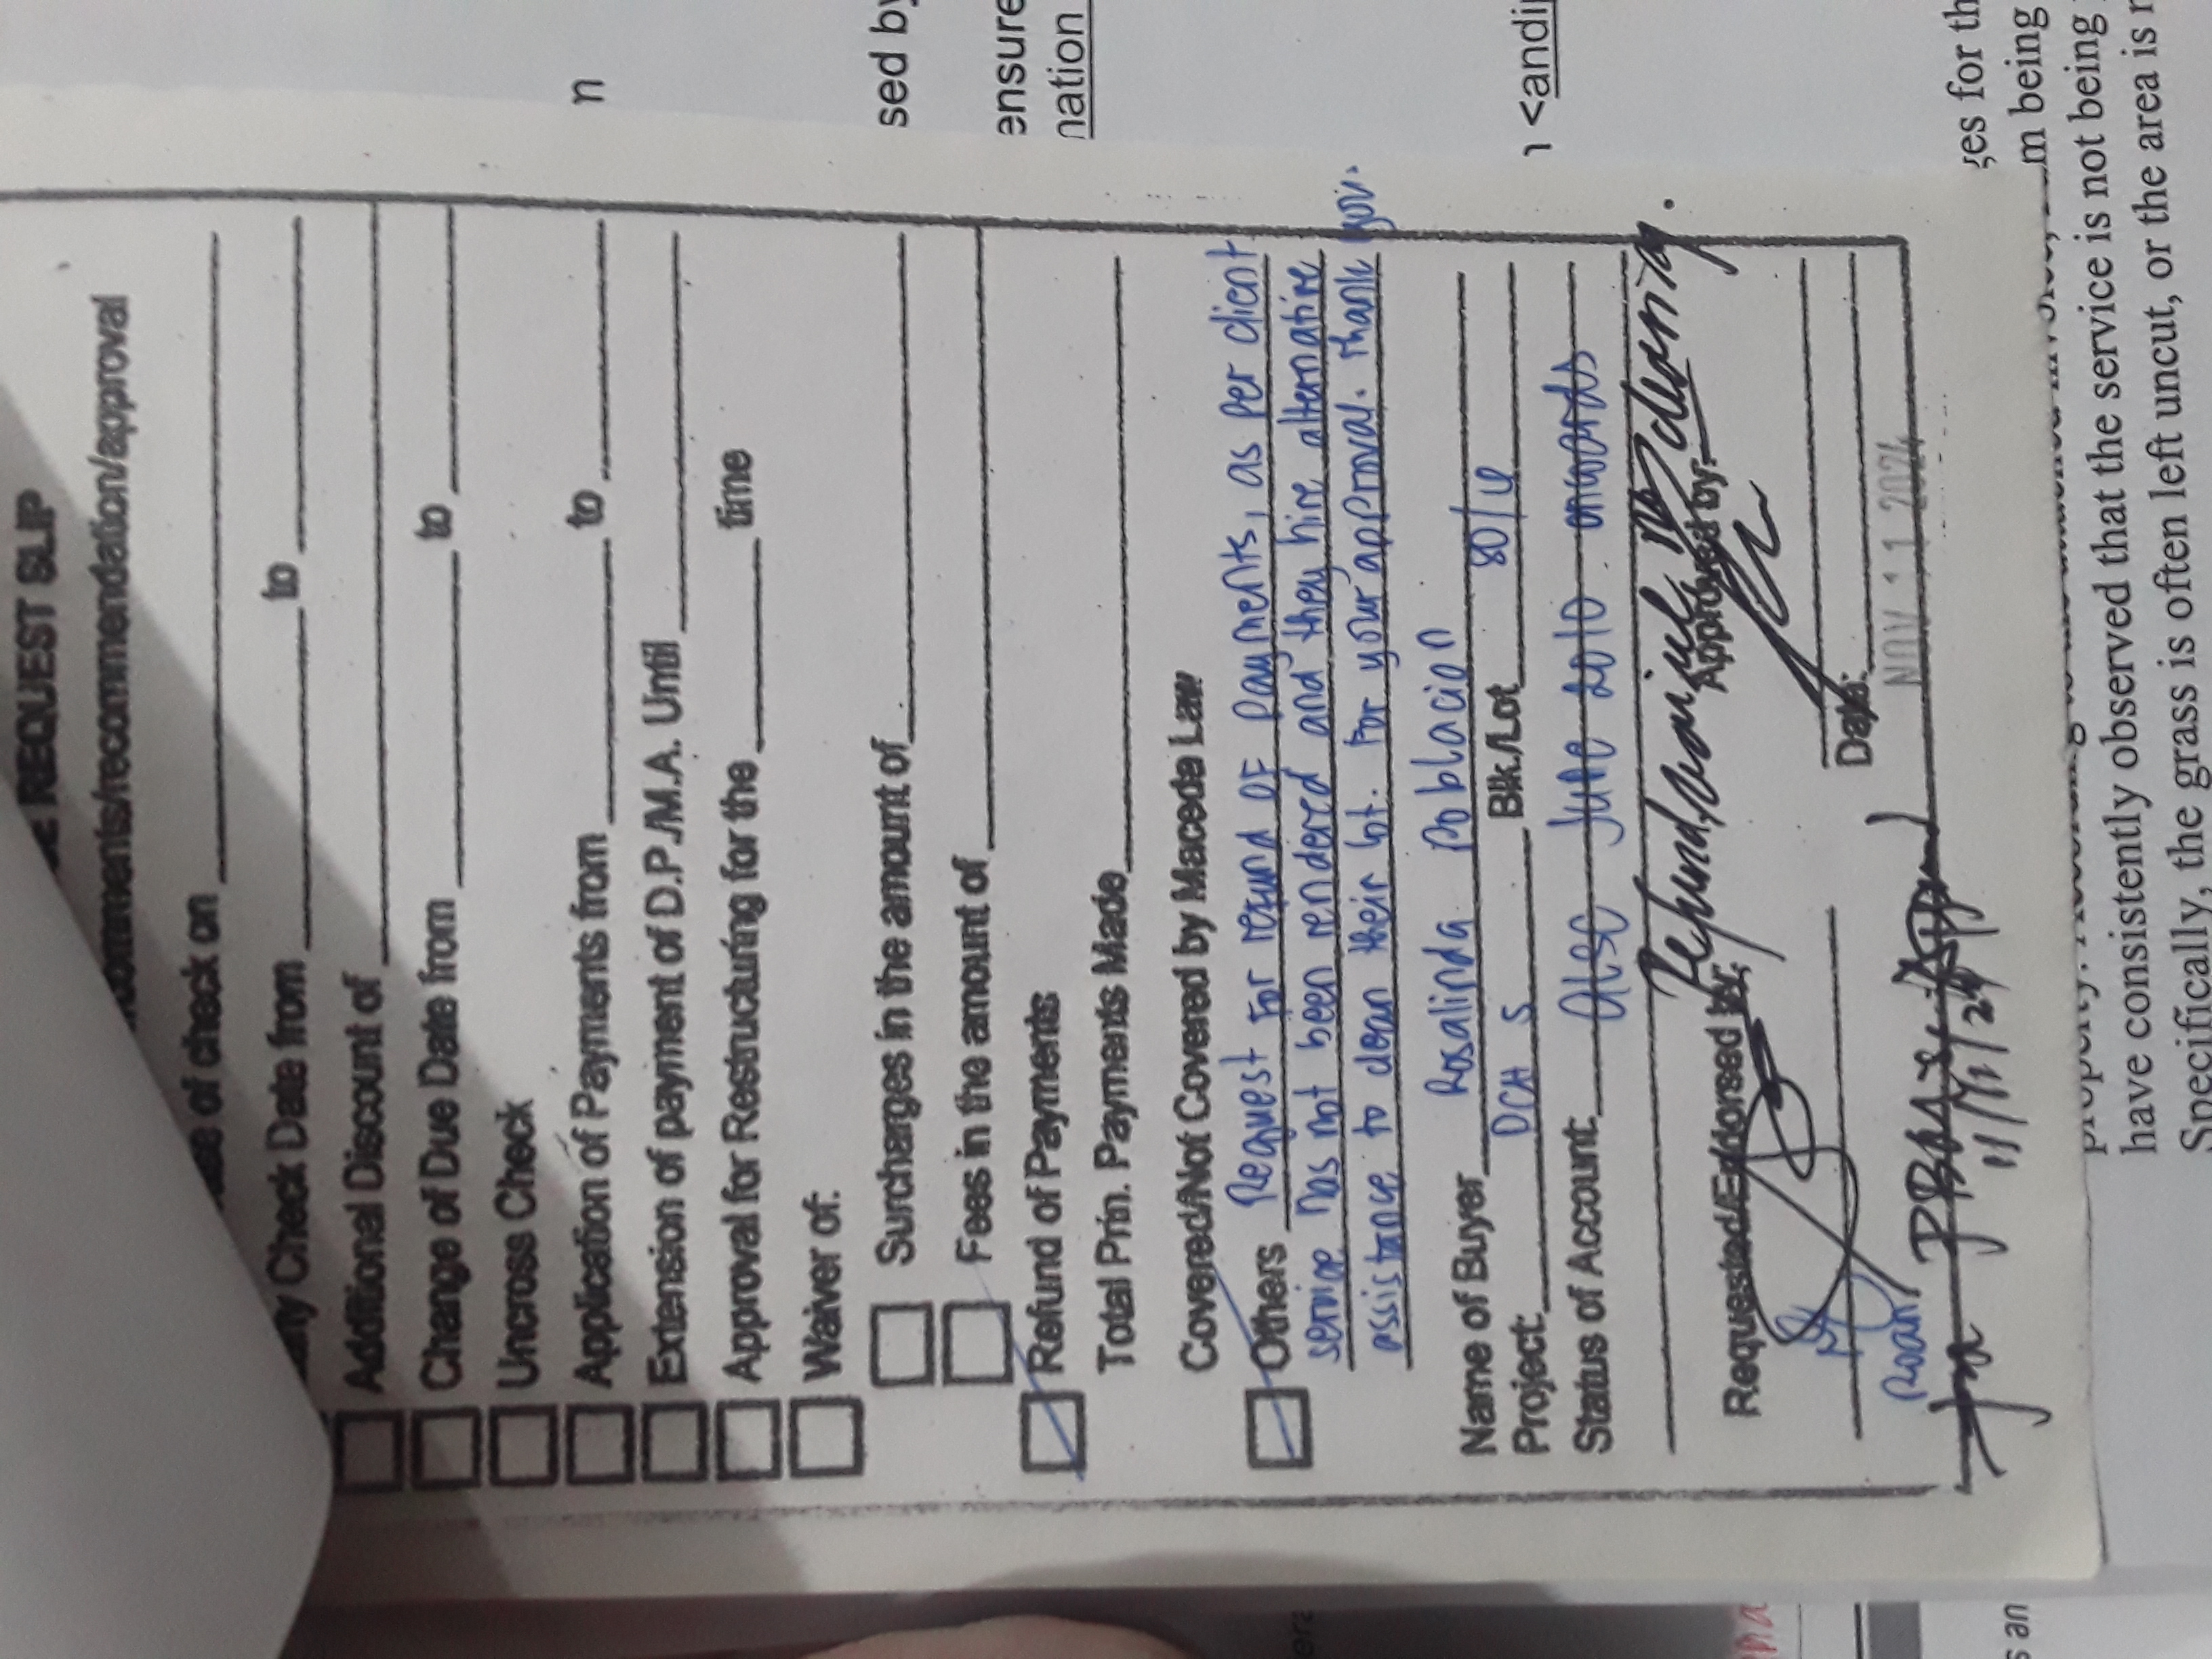 REQUEST SLIP
comments/recommendation/approval
of check on
Check Date from to
Additional Discount of
Change of Due Date from to
Uncross Check
Application of Payments from to
Extension of payment of D.P./M.A. Until
Approval for Restructuring for the time
Waiver of:
Surcharges in the amount of
Fees in the amount of
Refund of Payments
Total Prin. Payments Made
Covered/Not Covered by Maceda Law
Others Request For refund of payments, as per client
service has not been rendered and they hire alternative
assistance to clean their lot. For your approval. Thank you.
Name of Buyer Rosalinda Poblacion
Project: DCH 5 Blk./Lot 80/
Status of Account: GLSC June 2010 onwards
Refund, no cleaning.
Requested/Endorsed by: Approved by:
Date:
Roan
NOV 11 2024
11/11/24
n
sed by
ensure
mation
<andi
ges for th
m being
have consistently observed that the service is not being
Specifically, the grass is often left uncut, or the area is
s an